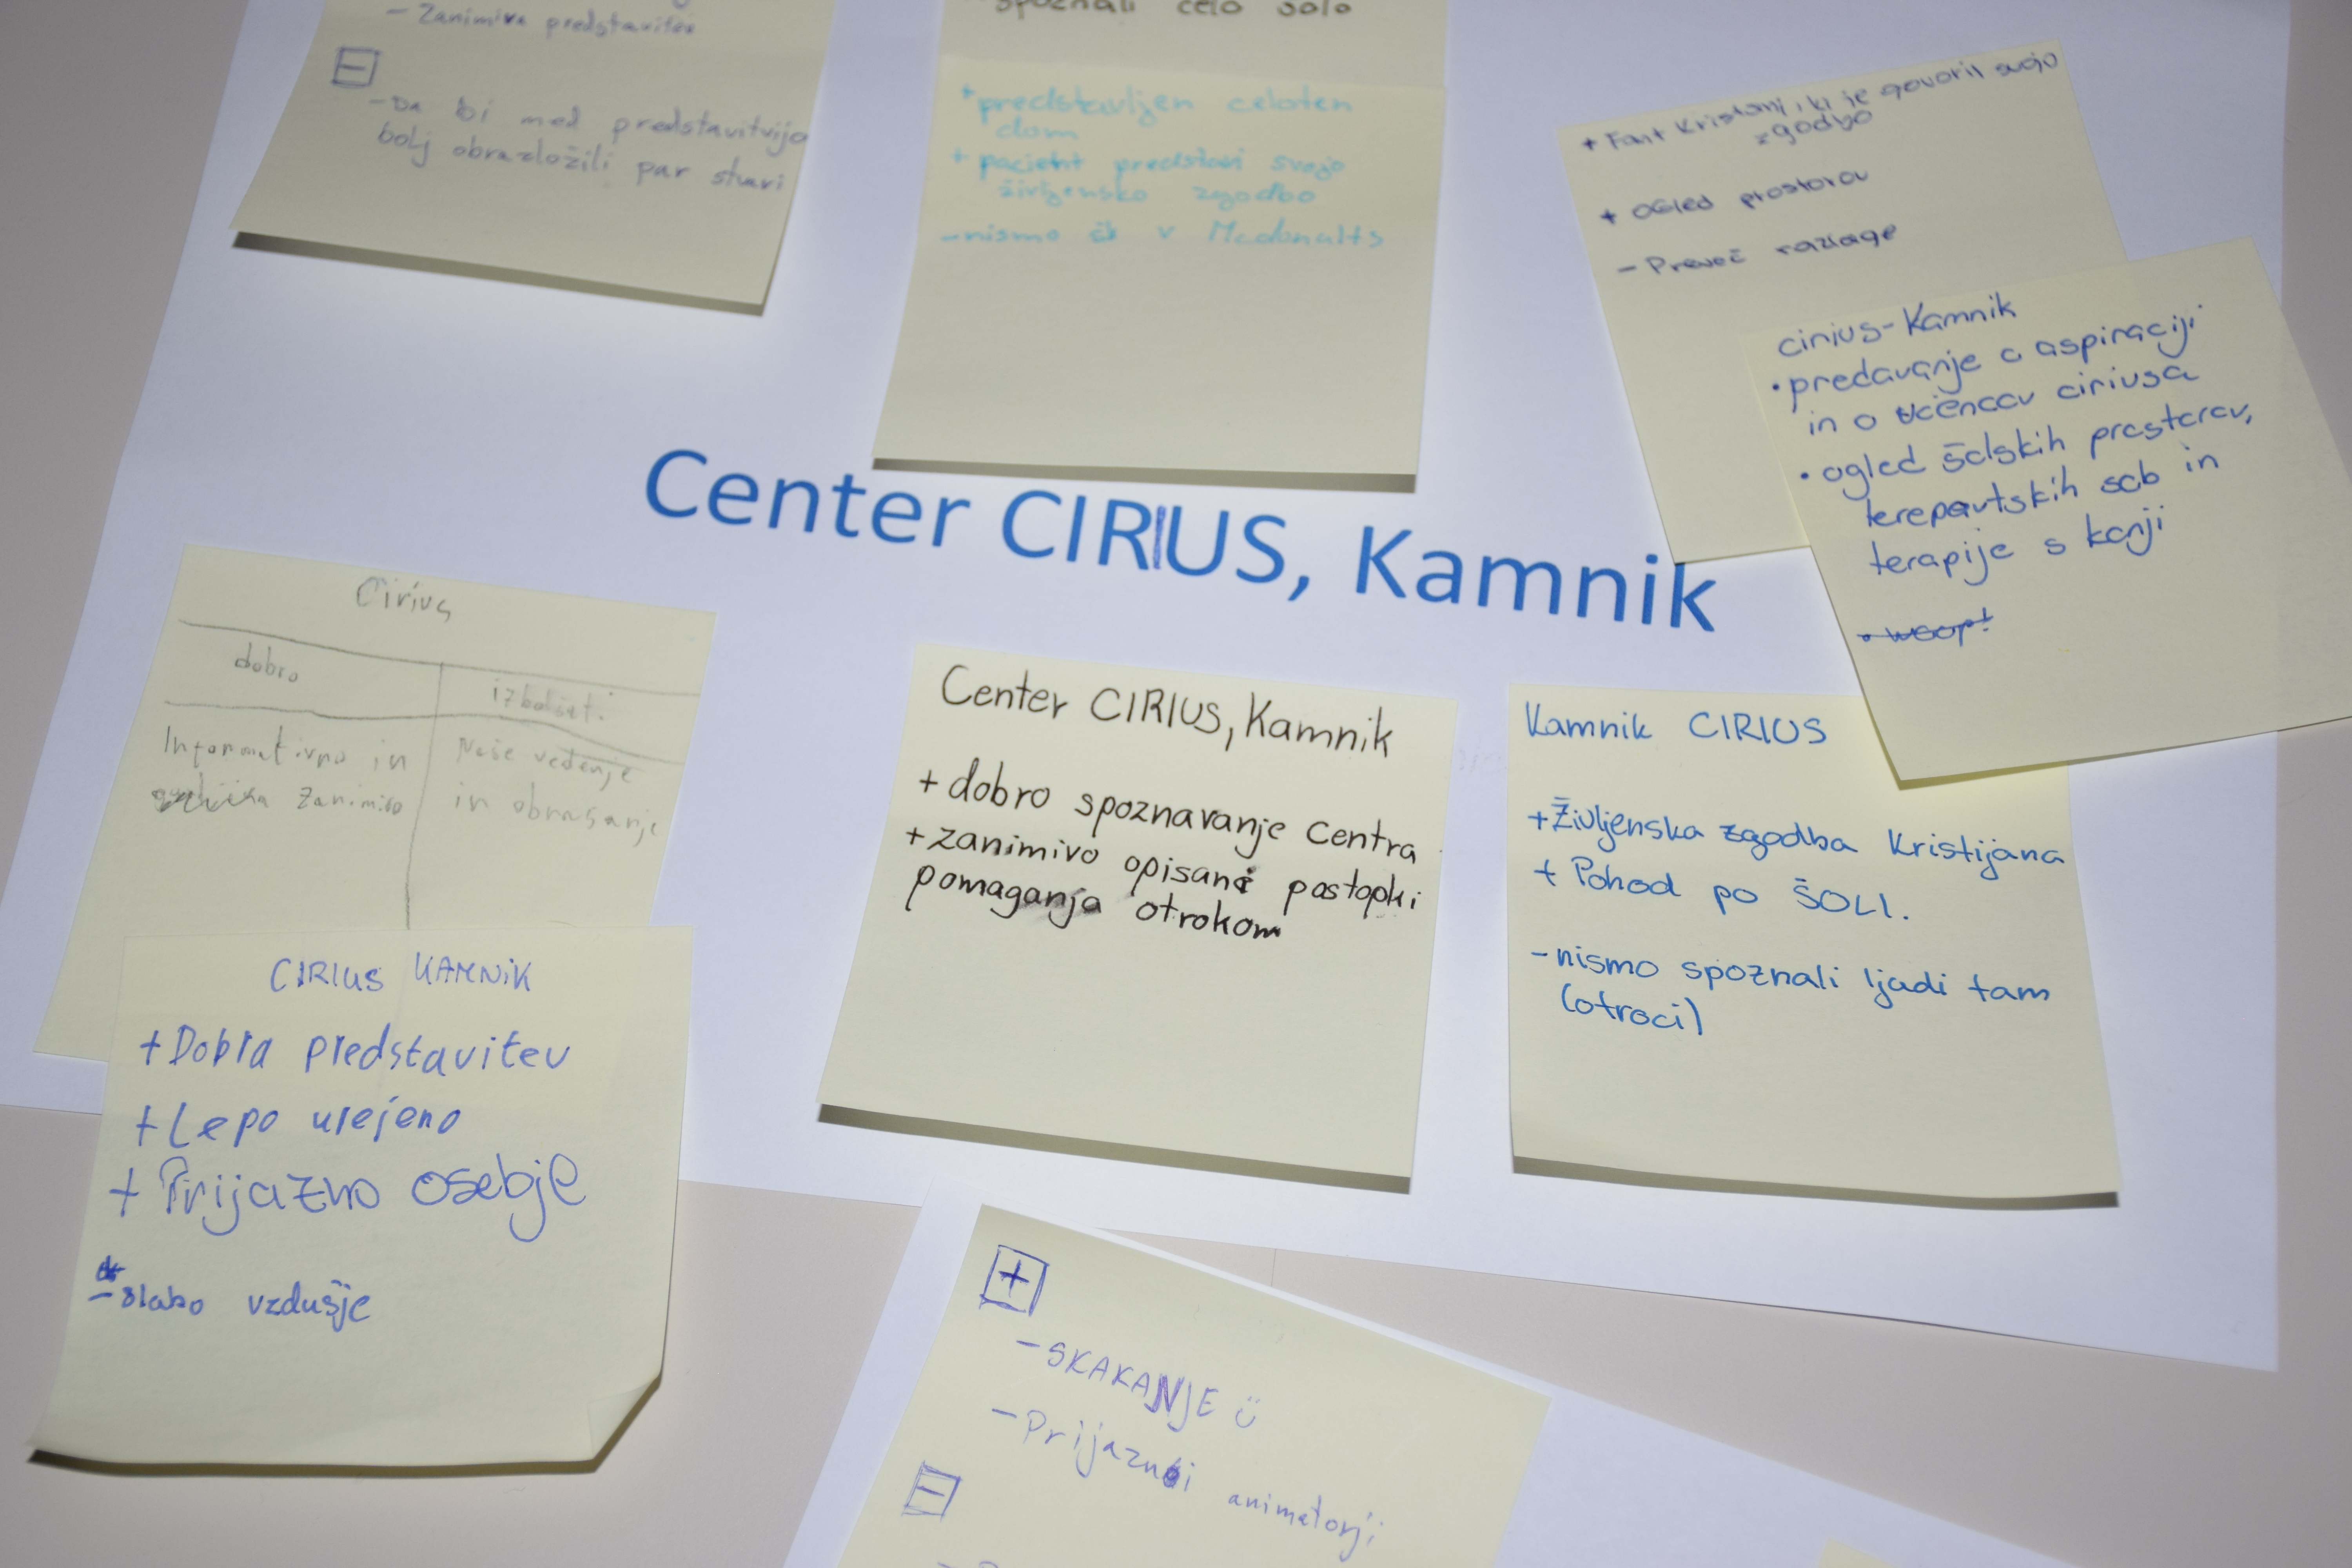 - Zanimiva predstavitev
-
- Da bi med predstavitvijo
bolj obrazložili par stvari
spoznali celo šolo
+ predstavljen celoten
dom
+ pacient predstavi svojo
življensko zgodbo
- nismo šli v Mcdonalts
+ Fant Kristjani, ki je govoril svojo
zgodbo
+ Ogled prostorov
- Preveč razlage
cirius-Kamnik
• predavanje o aspiraciji
in o učencov ciriusa
• ogled šolskih prostorov,
terepavtskih sob in
terapije s konji
• woop!
Center CIRIUS, Kamnik
Cirius
dobro
izboljšati
Informativno in
zanimivo
Naše vedenje
in obnašanje
Center CIRIUS, Kamnik
+ dobro spoznavanje centra
+ zanimivo opisani postopki
pomaganja otrokom
Kamnik CIRIUS
+ Življenska zgodba Kristijana
+ Pohod po ŠOLI.
- nismo spoznali ljadi tam
(otroci)
CIRIUS KAMNIK
+ Dobra predstavitev
+ Lepo urejeno
+ Prijazno osebje
- slabo vzdušje
+
- SKAKANJE
- Prijazni animatorji
-